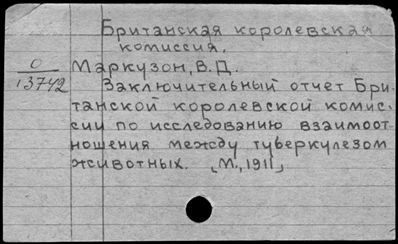 Британская королевская
комиссия.
О
13742
Маркузон, В.Д.
Заключительный отчет Бри-
танской королевской комис-
сии по исследованию взаимоот-
ношения между туберкулезом
животных. [М., 1911]